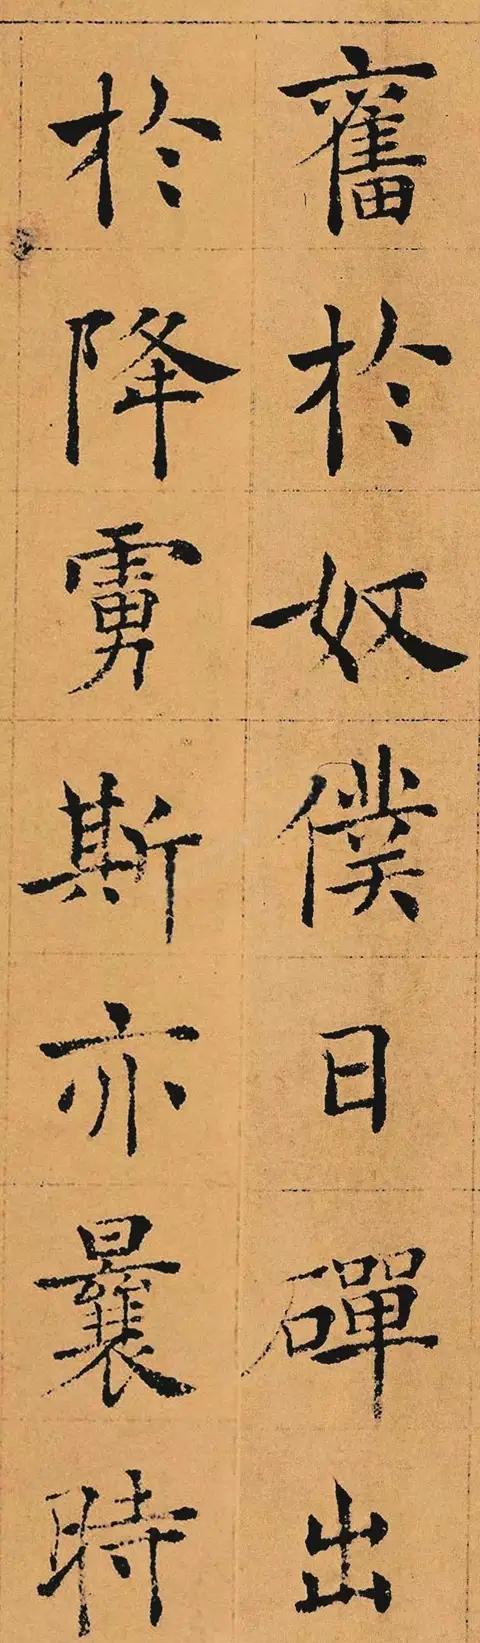 奮於奴僕日磾出
於降虜斯亦曩時